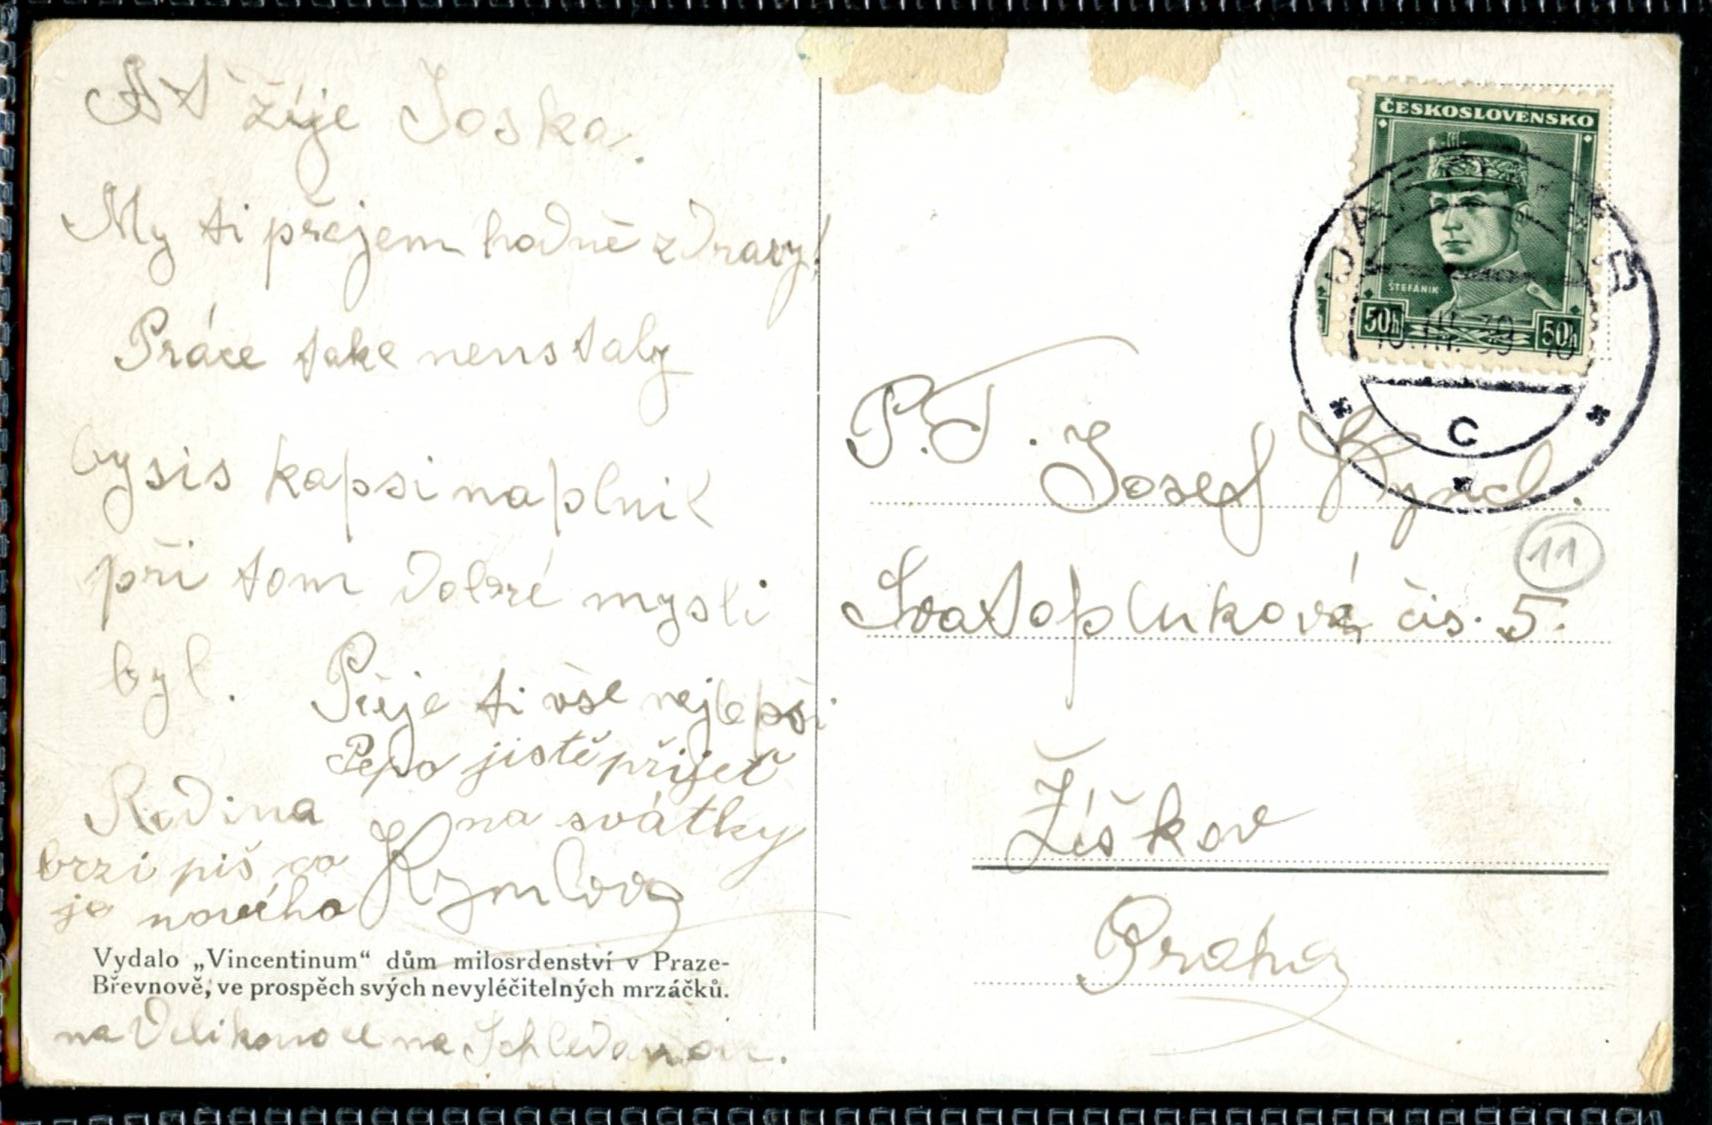 Ať žije Joska.
My ti přejem hodně zdravy!
Práce take neustaly
bysis kapsi naplnil
při tom dobré mysli
byl.
Přeje ti vše nejlepši
Pepo jistě přijeť
na svátky
Rodina
brzi piš co
je nového
Vydalo „Vincentinum“ dům milosrdenství v Praze-
Břevnově, ve prospěch svých nevyléčitelných mrzáčků.
na Velikonoce na Schledanou.
ČESKOSLOVENSKO
ŠTEFÁNIK
50h 50h
III. 39
C
P.T. Josef
11
Svatoplukova čis. 5.
Žiškov
Praha